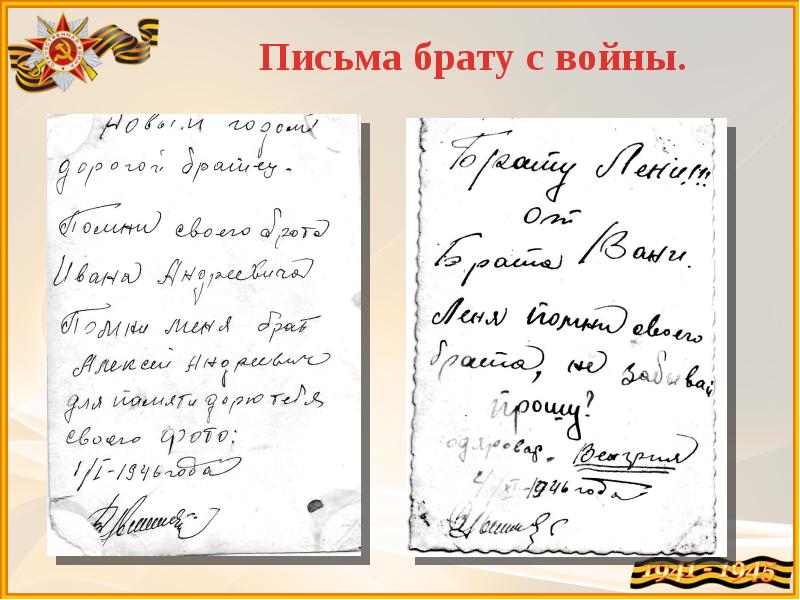 Письма брату с войны.
Новым годом
дорогой братец.
Помни своего брата
Ивана Андреевича
Помни меня брат
Алексей Андреевич
для памяти дорю тебя
своего фото:
1/I-1946 года
Брату Лени!!!
от
Брата Вани.
Леня помни своего
брата, не забывай
прошу?
Венгрия
1946 года
1941 - 1945